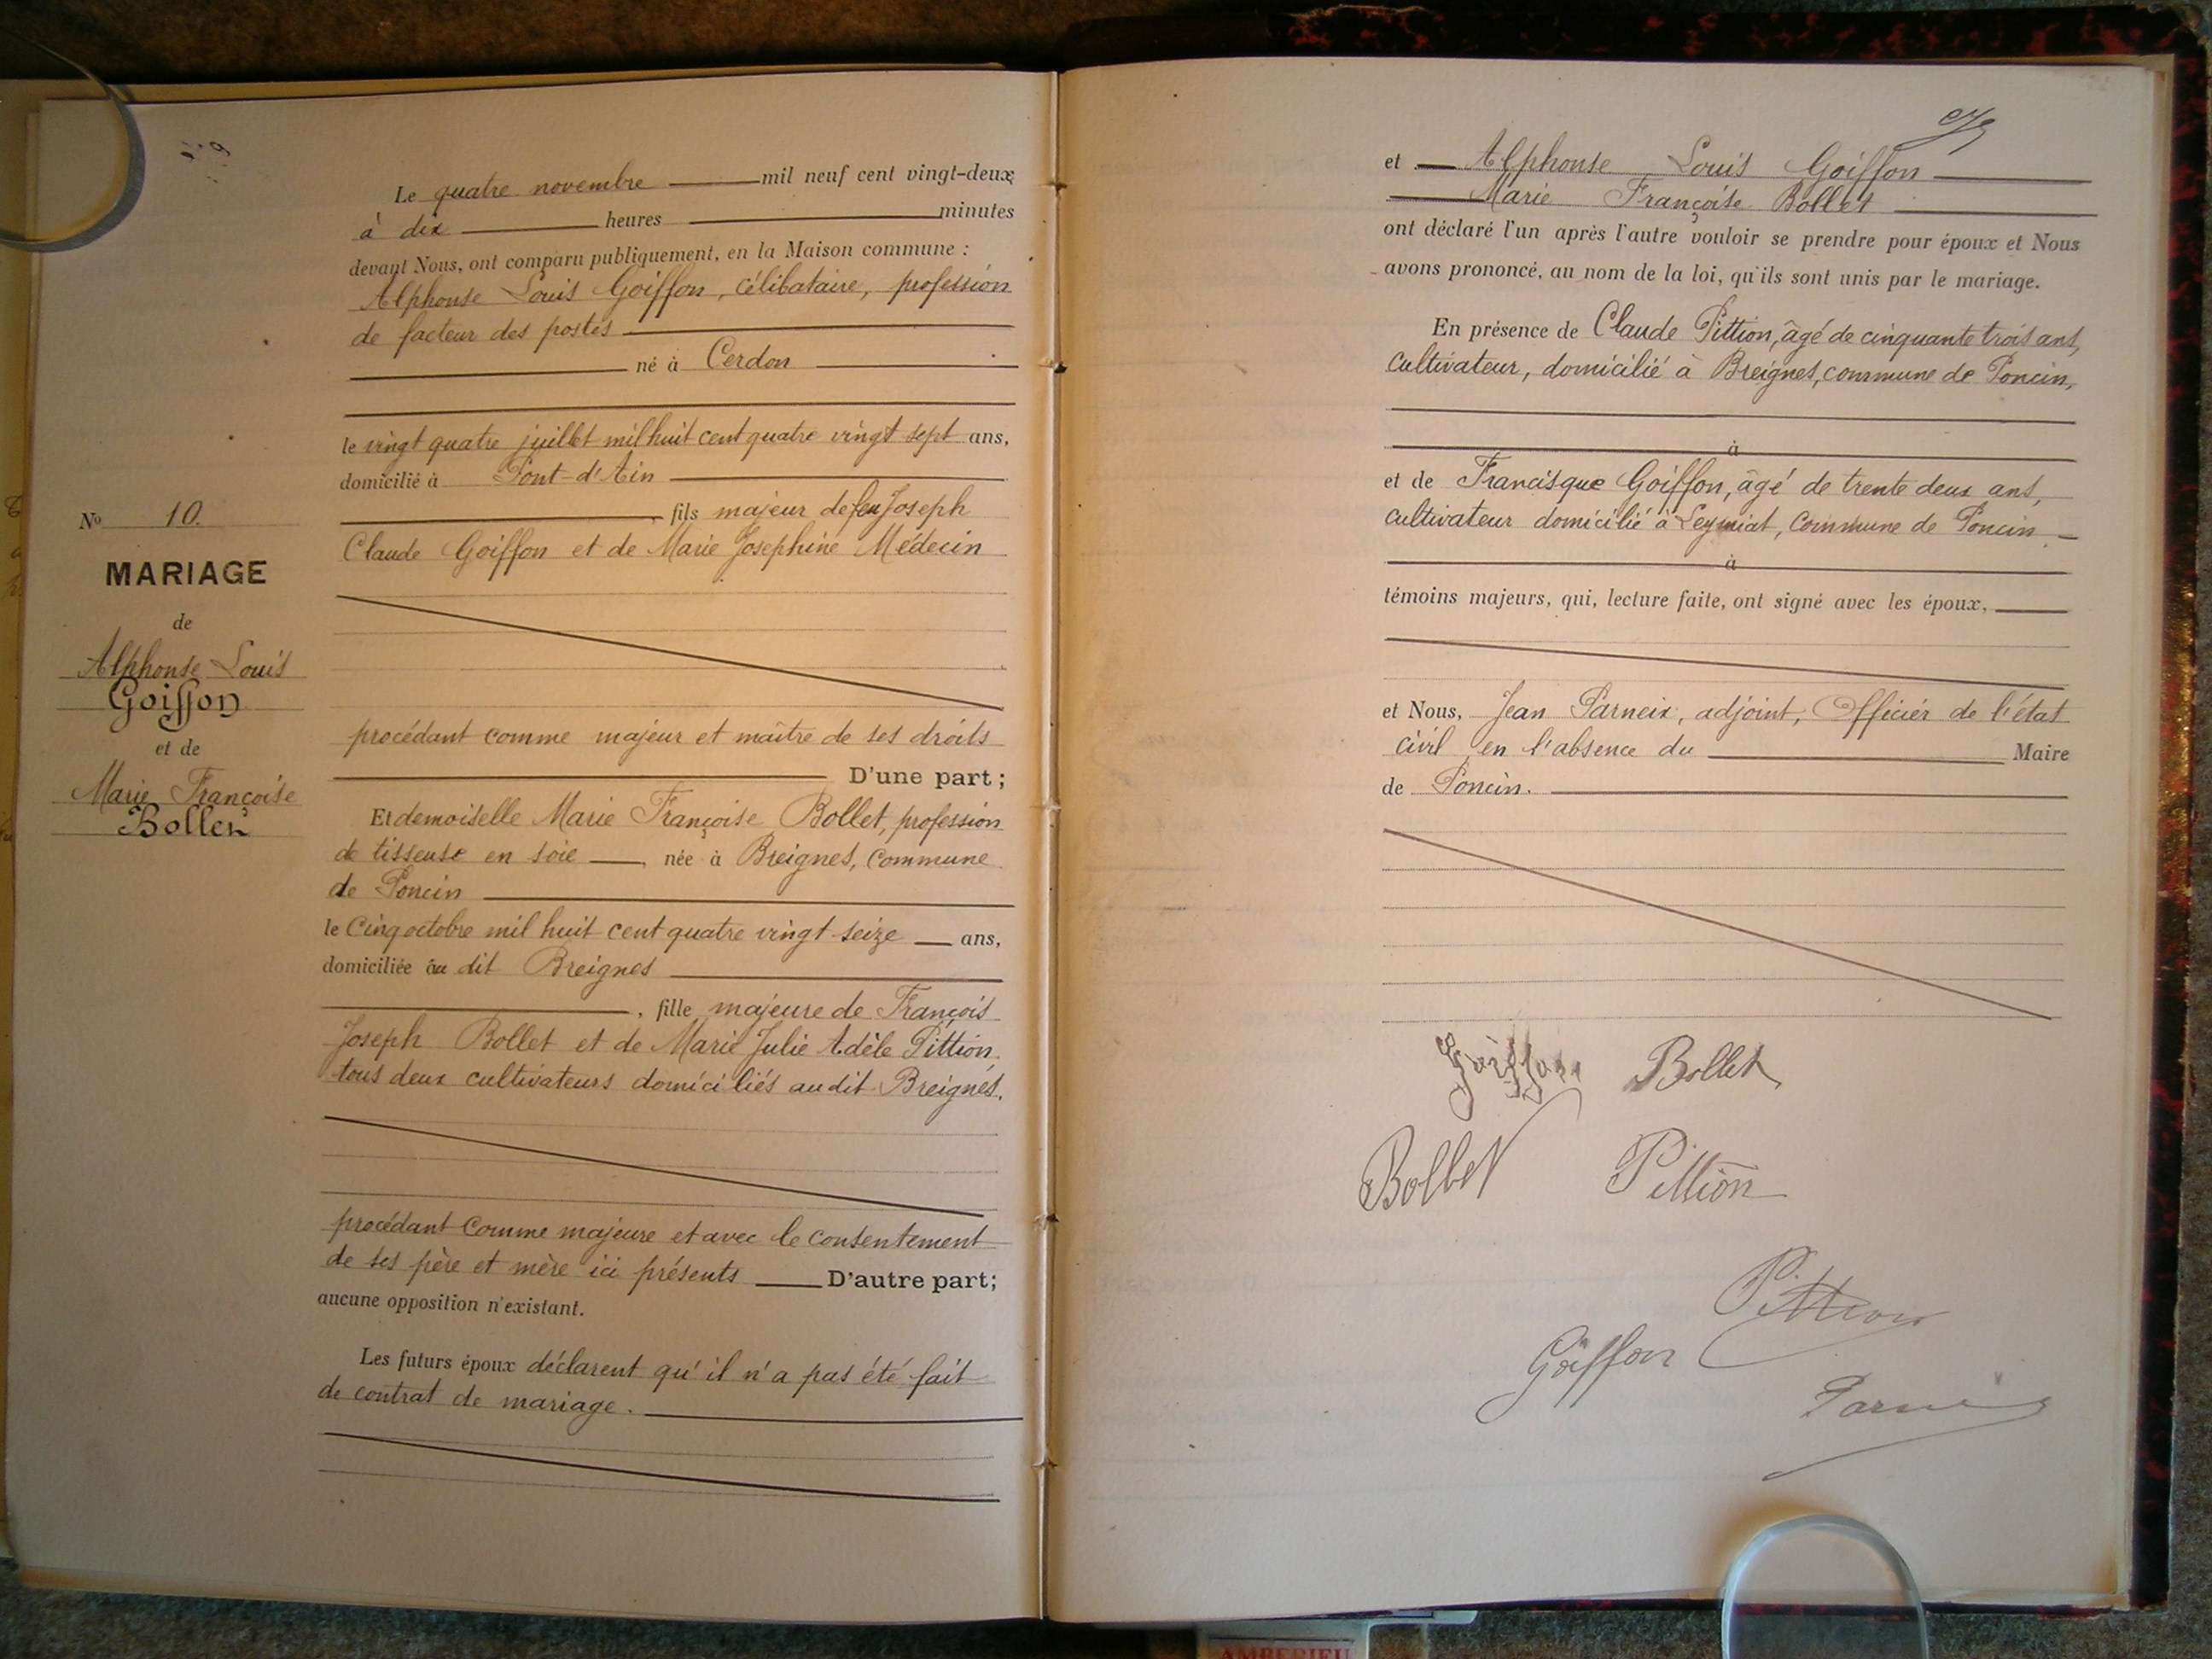 Le quatre novembre mil neuf cent vingt-deux
à dix heures minutes
devant Nous, ont comparu publiquement, en la Maison commune :
Alphonse Louis Goiffon, célibataire, profession
de facteur des postes
né à Cerdon
le vingt quatre juillet mil huit cent quatre vingt sept ans,
domicilié à Pont-d'Ain
, fils majeur de feu Joseph
Claude Goiffon et de Marie Josephine Médecin
procédant comme majeur et maître de ses droits
D'une part ;
Et demoiselle Marie Françoise Bollet, profession
de tisseuse en soie , née à Breignes, commune
de Poncin
le cinq octobre mil huit cent quatre vingt seize ans,
domiciliée au dit Breignes
, fille majeure de François
Joseph Bollet et de Marie Julie Adèle Pittion
tous deux cultivateurs domiciliés audit Breignes.
procédant comme majeure et avec le consentement
de ses père et mère ici présents D'autre part;
aucune opposition n'existant.
Les futurs époux déclarent qu'il n'a pas été fait
de contrat de mariage.
No 10.
MARIAGE
de
Alphonse Louis
Goiffon
et de
Marie Françoise
Bollet
et Alphonse Louis Goiffon
Marie Françoise Bollet
ont déclaré l'un après l'autre vouloir se prendre pour époux et Nous
avons prononcé, au nom de la loi, qu'ils sont unis par le mariage.
En présence de Claude Pittion, âgé de cinquante trois ans,
cultivateur, domicilié à Breignes, commune de Poncin,
à
et de Francisque Goiffon, âgé de trente deux ans,
cultivateur domicilié à Leymiat, commune de Poncin
à
témoins majeurs, qui, lecture faite, ont signé avec les époux,
et Nous, Jean Parneix, adjoint, Officier de l'état
civil en l'absence du Maire
de Poncin.
Goiffon Bollet
Bollet Pittion
Pittion
Goiffon
Parneix
AMBERIEU